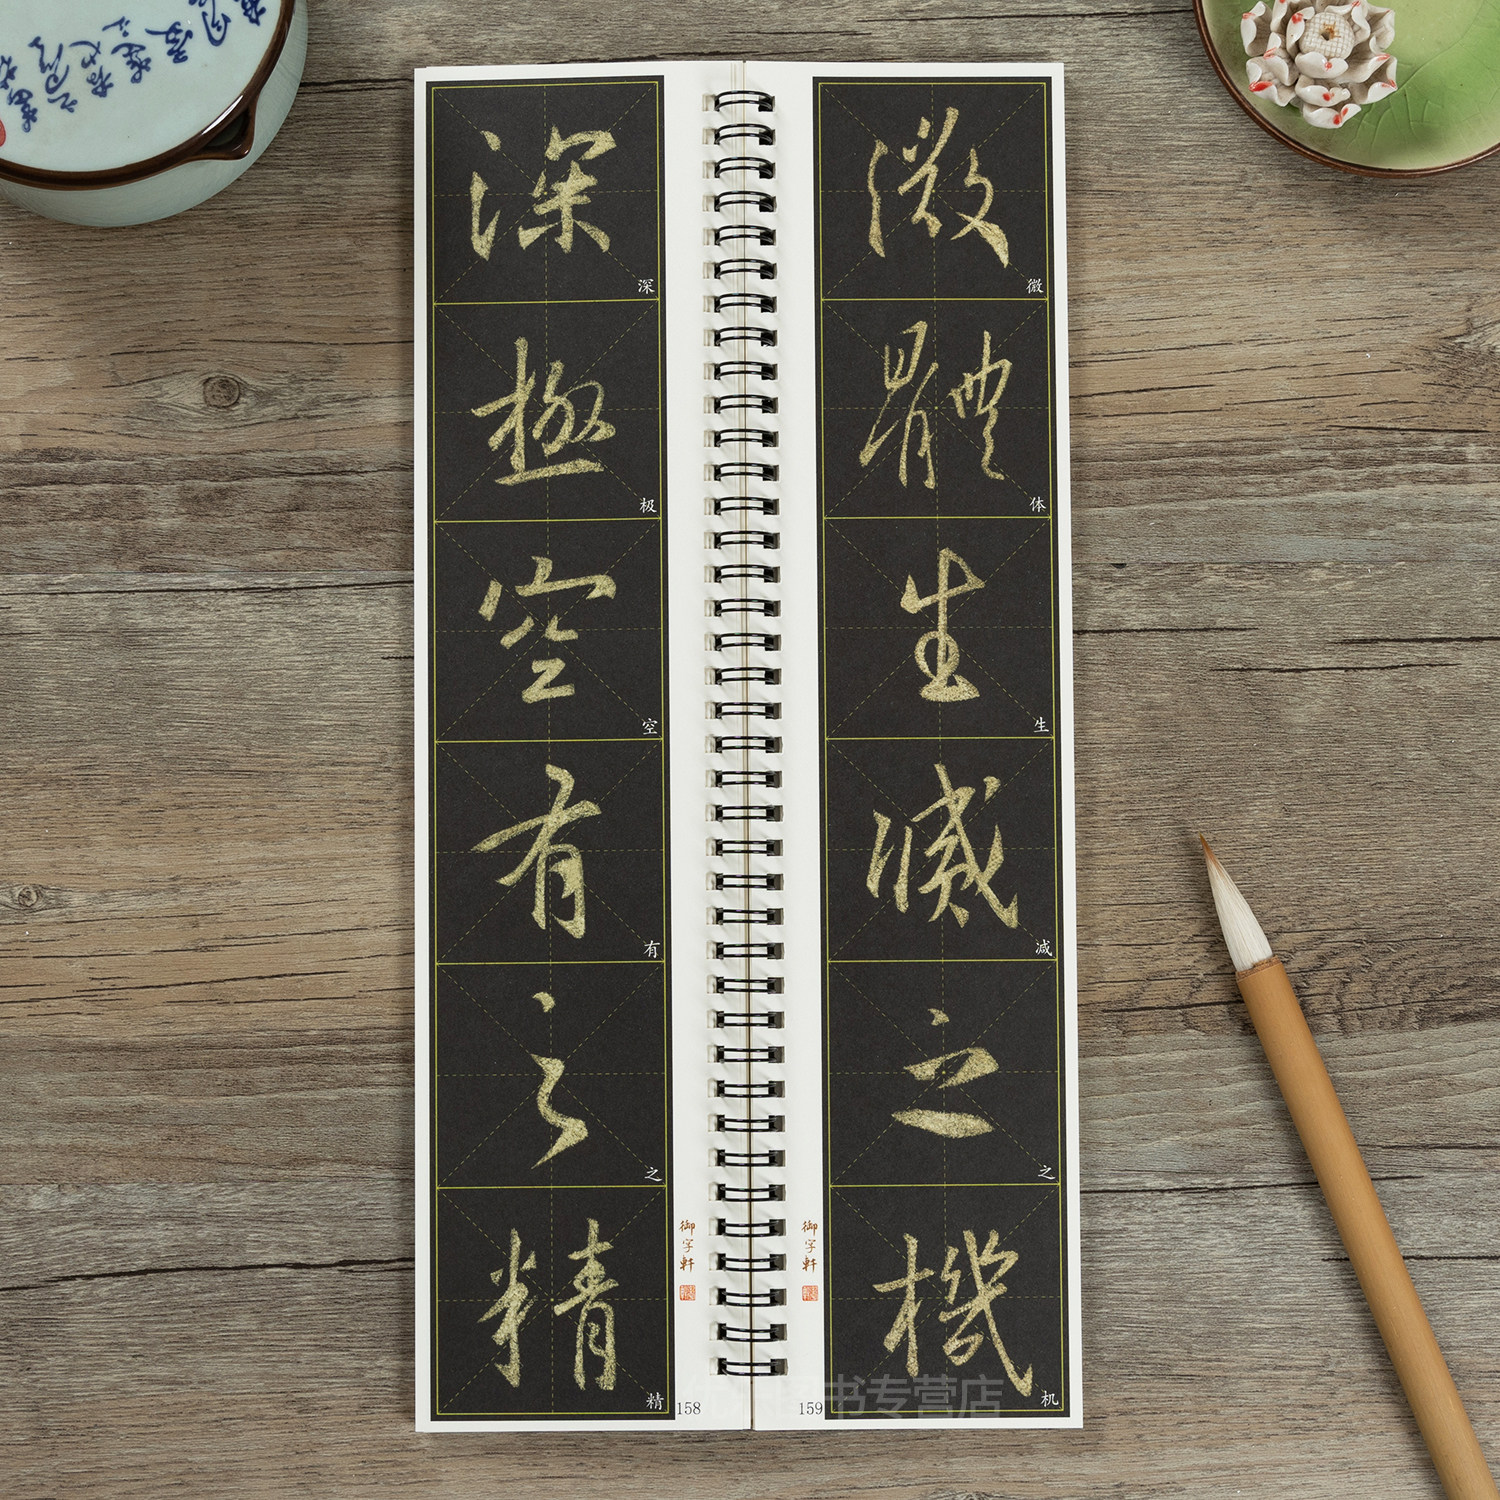 深
深
極
极
空
空
有
有
之
之
精
精
御字軒
158
微
微
體
体
生
生
滅
减
之
之
機
机
御字軒
159
书专营店